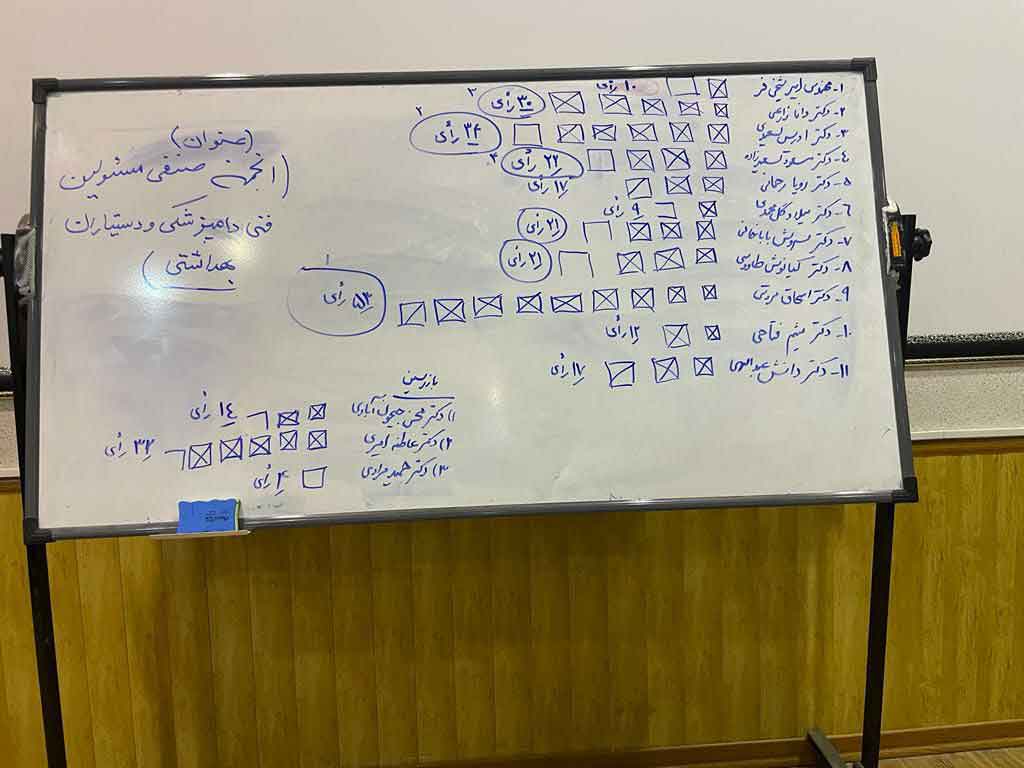 (عنوان)
(انجمن صنفی مسئولین
فنی دامپزشکی و دستیاران
بهداشتی)
۱- مهندس امیر شیخی فر ۱۰ رأی
۲- دکتر دانا زارعی ۳۰ رأی ۳
۳- دکتر ادریس سعیدی ۳۴ رأی ۲
۴- دکتر مسعود سعیدزاده ۲۲ رأی ۴
۵- دکتر رویا رحمانی ۱۷ رأی
۶- دکتر میلاد گل محمدی ۹ رأی
۷- دکتر سروش باباخانی ۲۱ رأی
۸- دکتر کیانوش طاوسی ۲۱ رأی
۹- دکتر اسحاق مردتی ۵۳ رأی ۱
۱۰- دکتر میثم فتاحی ۱۲ رأی
۱۱- دکتر دانش عبداللهی ۱۷ رأی
بازرسین
۱) دکتر محسن آبادی ۱۴ رأی
۲) دکتر عاطفه امیری ۳۲ رأی
۳) دکتر حمید مرادی ۴ رأی